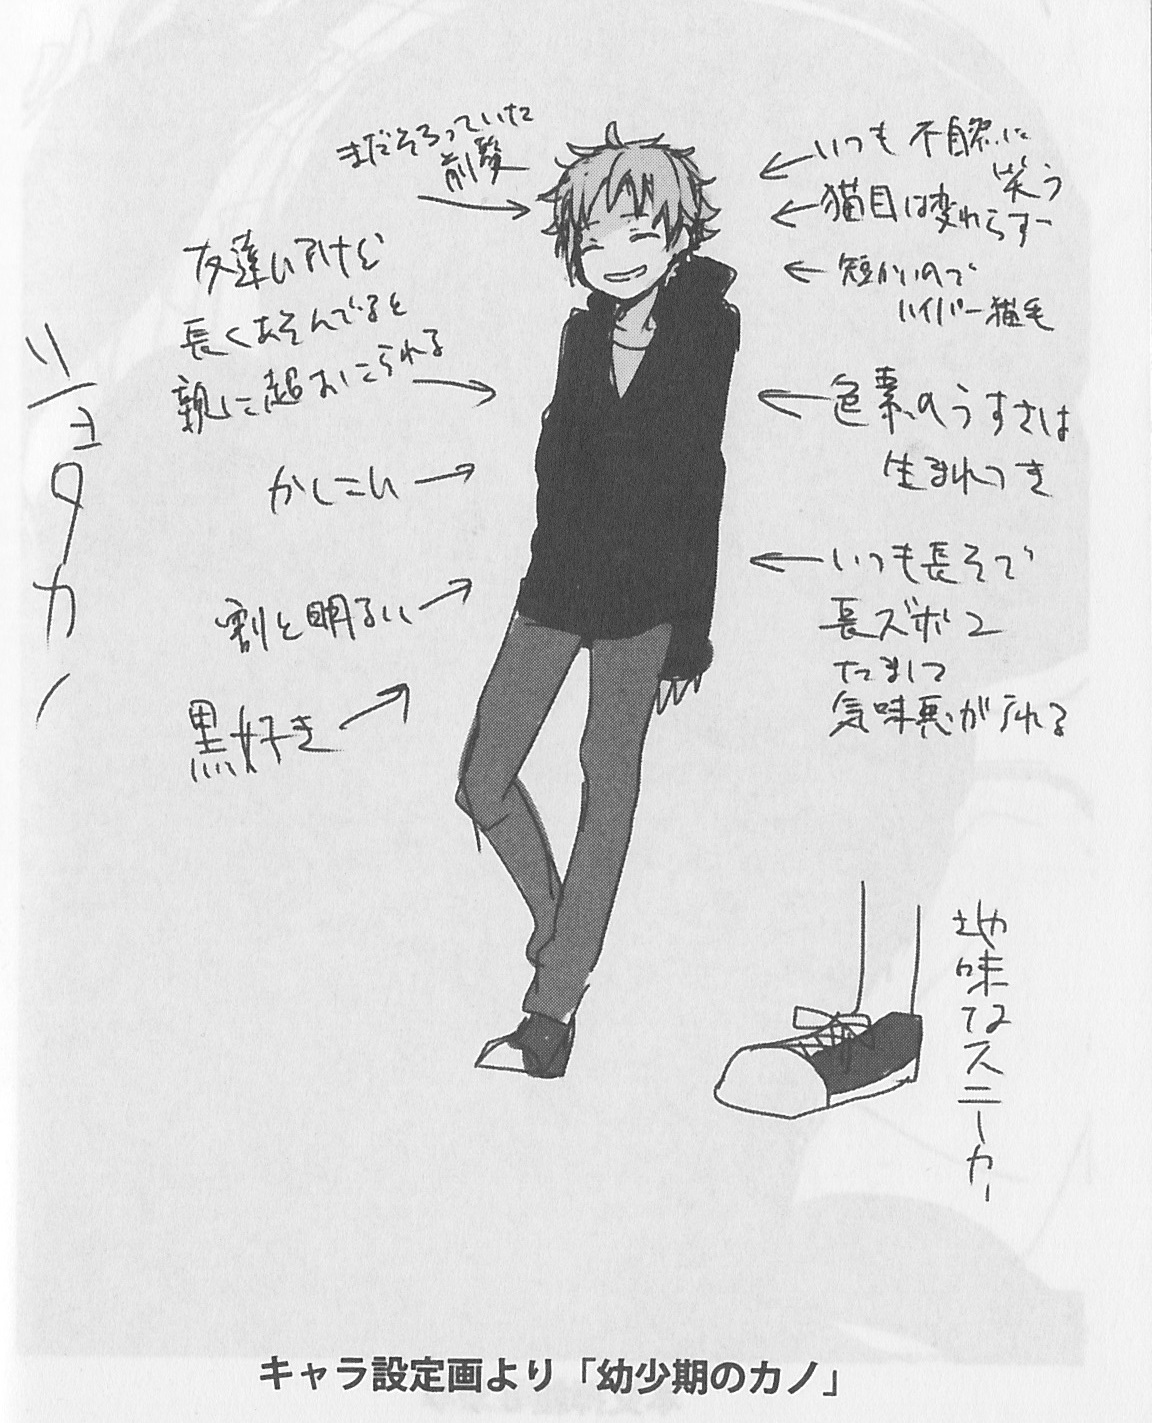 まだそろっていた
前髪
友達いるけど
長くあそんでると
親に超おこられる
かしこい
割と明るい
黒好き
ショタカノ
いつも不自然に
笑う
猫目は変わらず
短かいので
ハイパー猫毛
色素のうすさは
生まれつき
いつも長そで
長ズボン
たまに
気味悪がられる
地味なスニーカー
キャラ設定画より「幼少期のカノ」